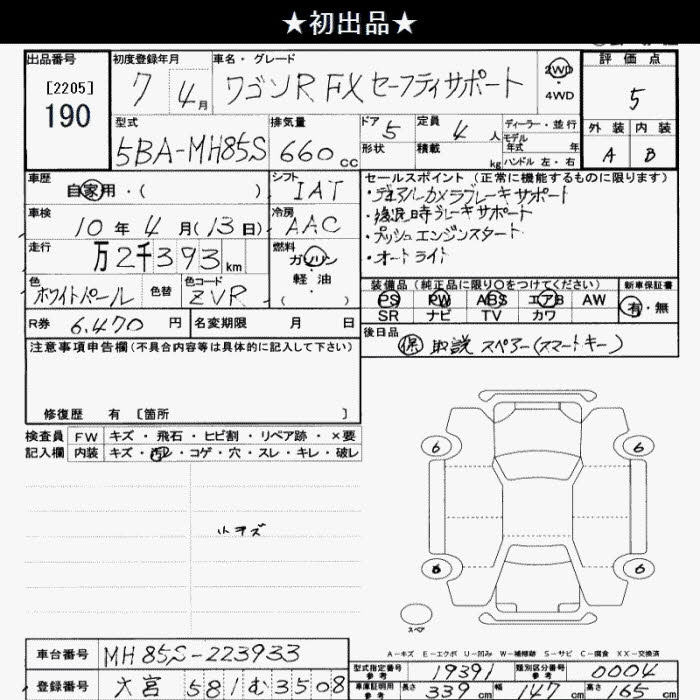 ★初出品★
出品番号 初度登録年月 車名・グレード 評価点
[2205]
190
7 4月 ワゴンR FX セーフティサポート 2WD・4WD 5
型式 排気量 ドア 5 定員 4人 ディーラー・並行
モデル年式 年
5BA-MH85S 660cc 形状 積載 kg ハンドル 左・右
外装 内装
A B
車歴 自家用・( ) シフト IAT
車検 10年4月(13日) 冷房 AAC
走行 万2千393km 燃料 ガソリン・軽油
( )
色 ホワイトパール 色替 色コード ZVR
R券 6,470円 名変期限 月 日
セールスポイント(正常に機能するものに限ります)
・デュアルカメラブレーキサポート
・後退時ブレーキサポート
・プッシュエンジンスタート
・オートライト
装備品(純正品に限り○をつけてください) 新車保証書
PS PW ABS エアB AW 有・無
SR ナビ TV カワ
後日品
保 取説 スペアー(スマートキー)
注意事項申告欄(不具合内容等は具体的に記入して下さい)
修復歴 有 [箇所 ]
検査員 FW キズ・飛石・ヒビ割・リペア跡・×要
記入欄 内装 キズ・汚レ・コゲ・穴・スレ・キレ・破レ
小キズ
6 6
6 6
スペア
A-キズ E-エクボ U-凹み W-補修跡 S-サビ C-腐食 XX-交換済
車台番号 MH85S-223933
登録番号 大宮 581 む 3508
型式指定番号 参考 19391 類別区分番号 参考 0004
車庫証明用 参考 長さ 339cm 幅 147cm 高さ 165cm